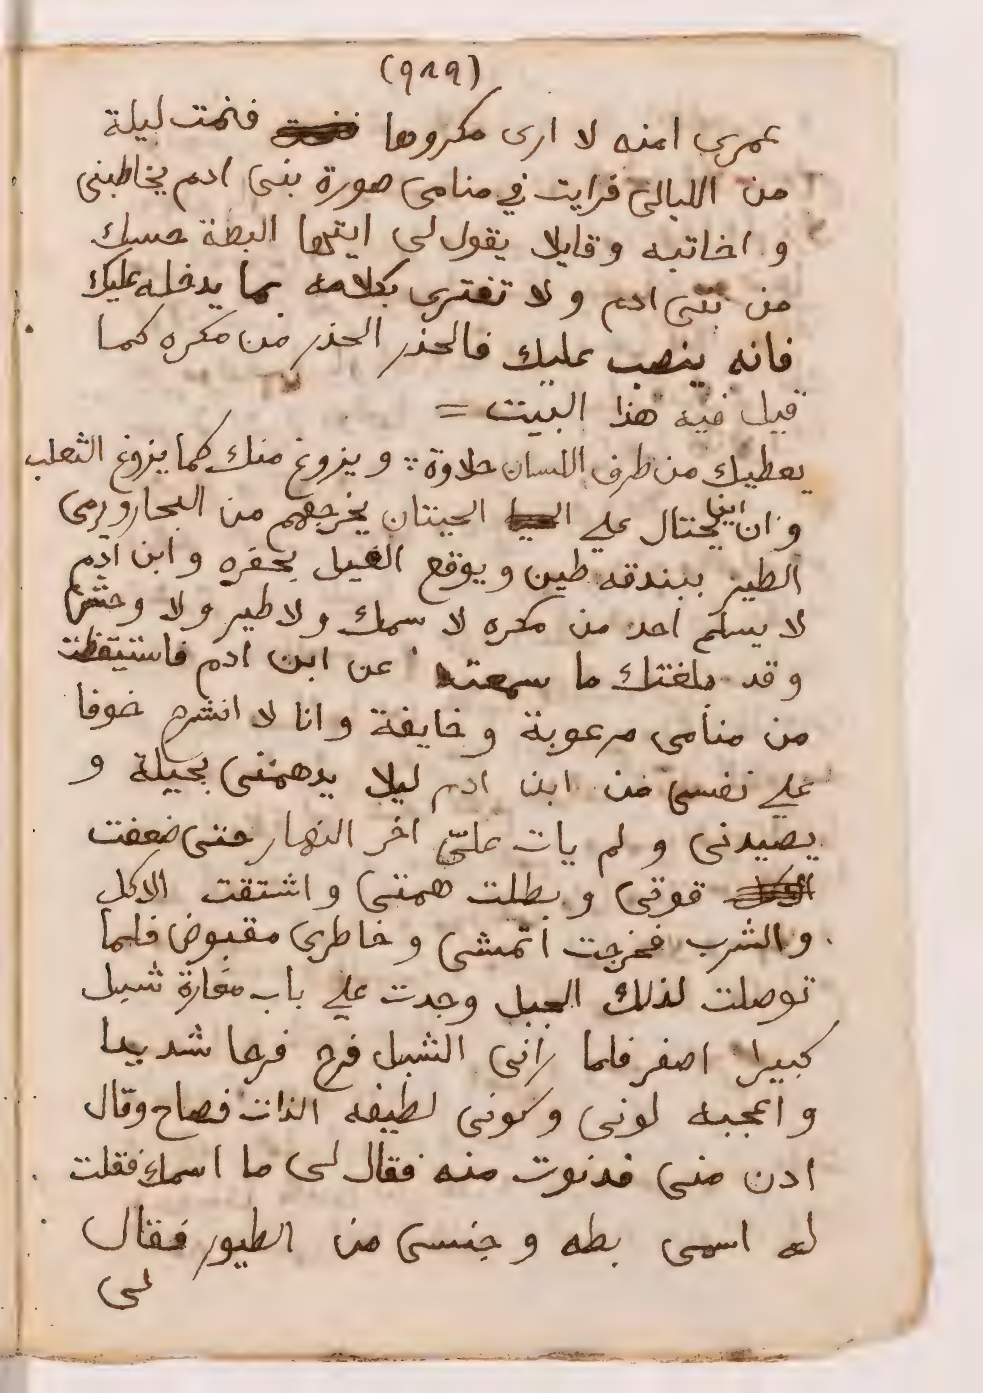 (٩٨٩)
عمري امنه لا ارى مكروها فنمت ليلة
من الليالى فرايت في منامى صورة بنى ادم يخاطبنى
و اخاتبه و قايلا يقول لى ايتها البطة حسبك
من بنى ادم و لا تغترى بكلامه بما يدخله عليك
فانه ينصب عليك فالحذر الحذر من مكره كما
قيل فيه هذا البيت =
يعطيك من طرف اللسان حلاوة ∴ و يزوغ منك كما يزوغ الثعلب
و ان ايضا يحتال علي الحيتان يخرجهم من البحار و يرمى
الطير ببندقه طين و يوقع الفيل بحفره و ابن ادم
لا يسلم احد من مكره لا سمك و لا طير و لا وحش
و قد بلغتك ما سمعت عن ابن ادم فاستيقظت
من منامى مرعوبة و خايفة و انا لا انشرح خوفا
علي نفسى من ابن ادم ليلا يدهمنى بحيلة و
يصيدنى و لم يات علىّ اخر النهار حتى ضعفت
قوتى و بطلت همتى و اشتقت الاكل
و الشرب فخرجت اتمشى و خاطرى مقبوض فلما
توصلت لذلك الجبل وجدت علي باب مغارة شبل
كبيرا اصفر فلما رانى الشبل فرح فرحا شديدا
و اعجبه لونى و كونى لطيفه الذات فصاح وقال
ادن منى فدنوت منه فقال لى ما اسمك فقلت
له اسمى بطه و جنسى من الطيور فقال
لى